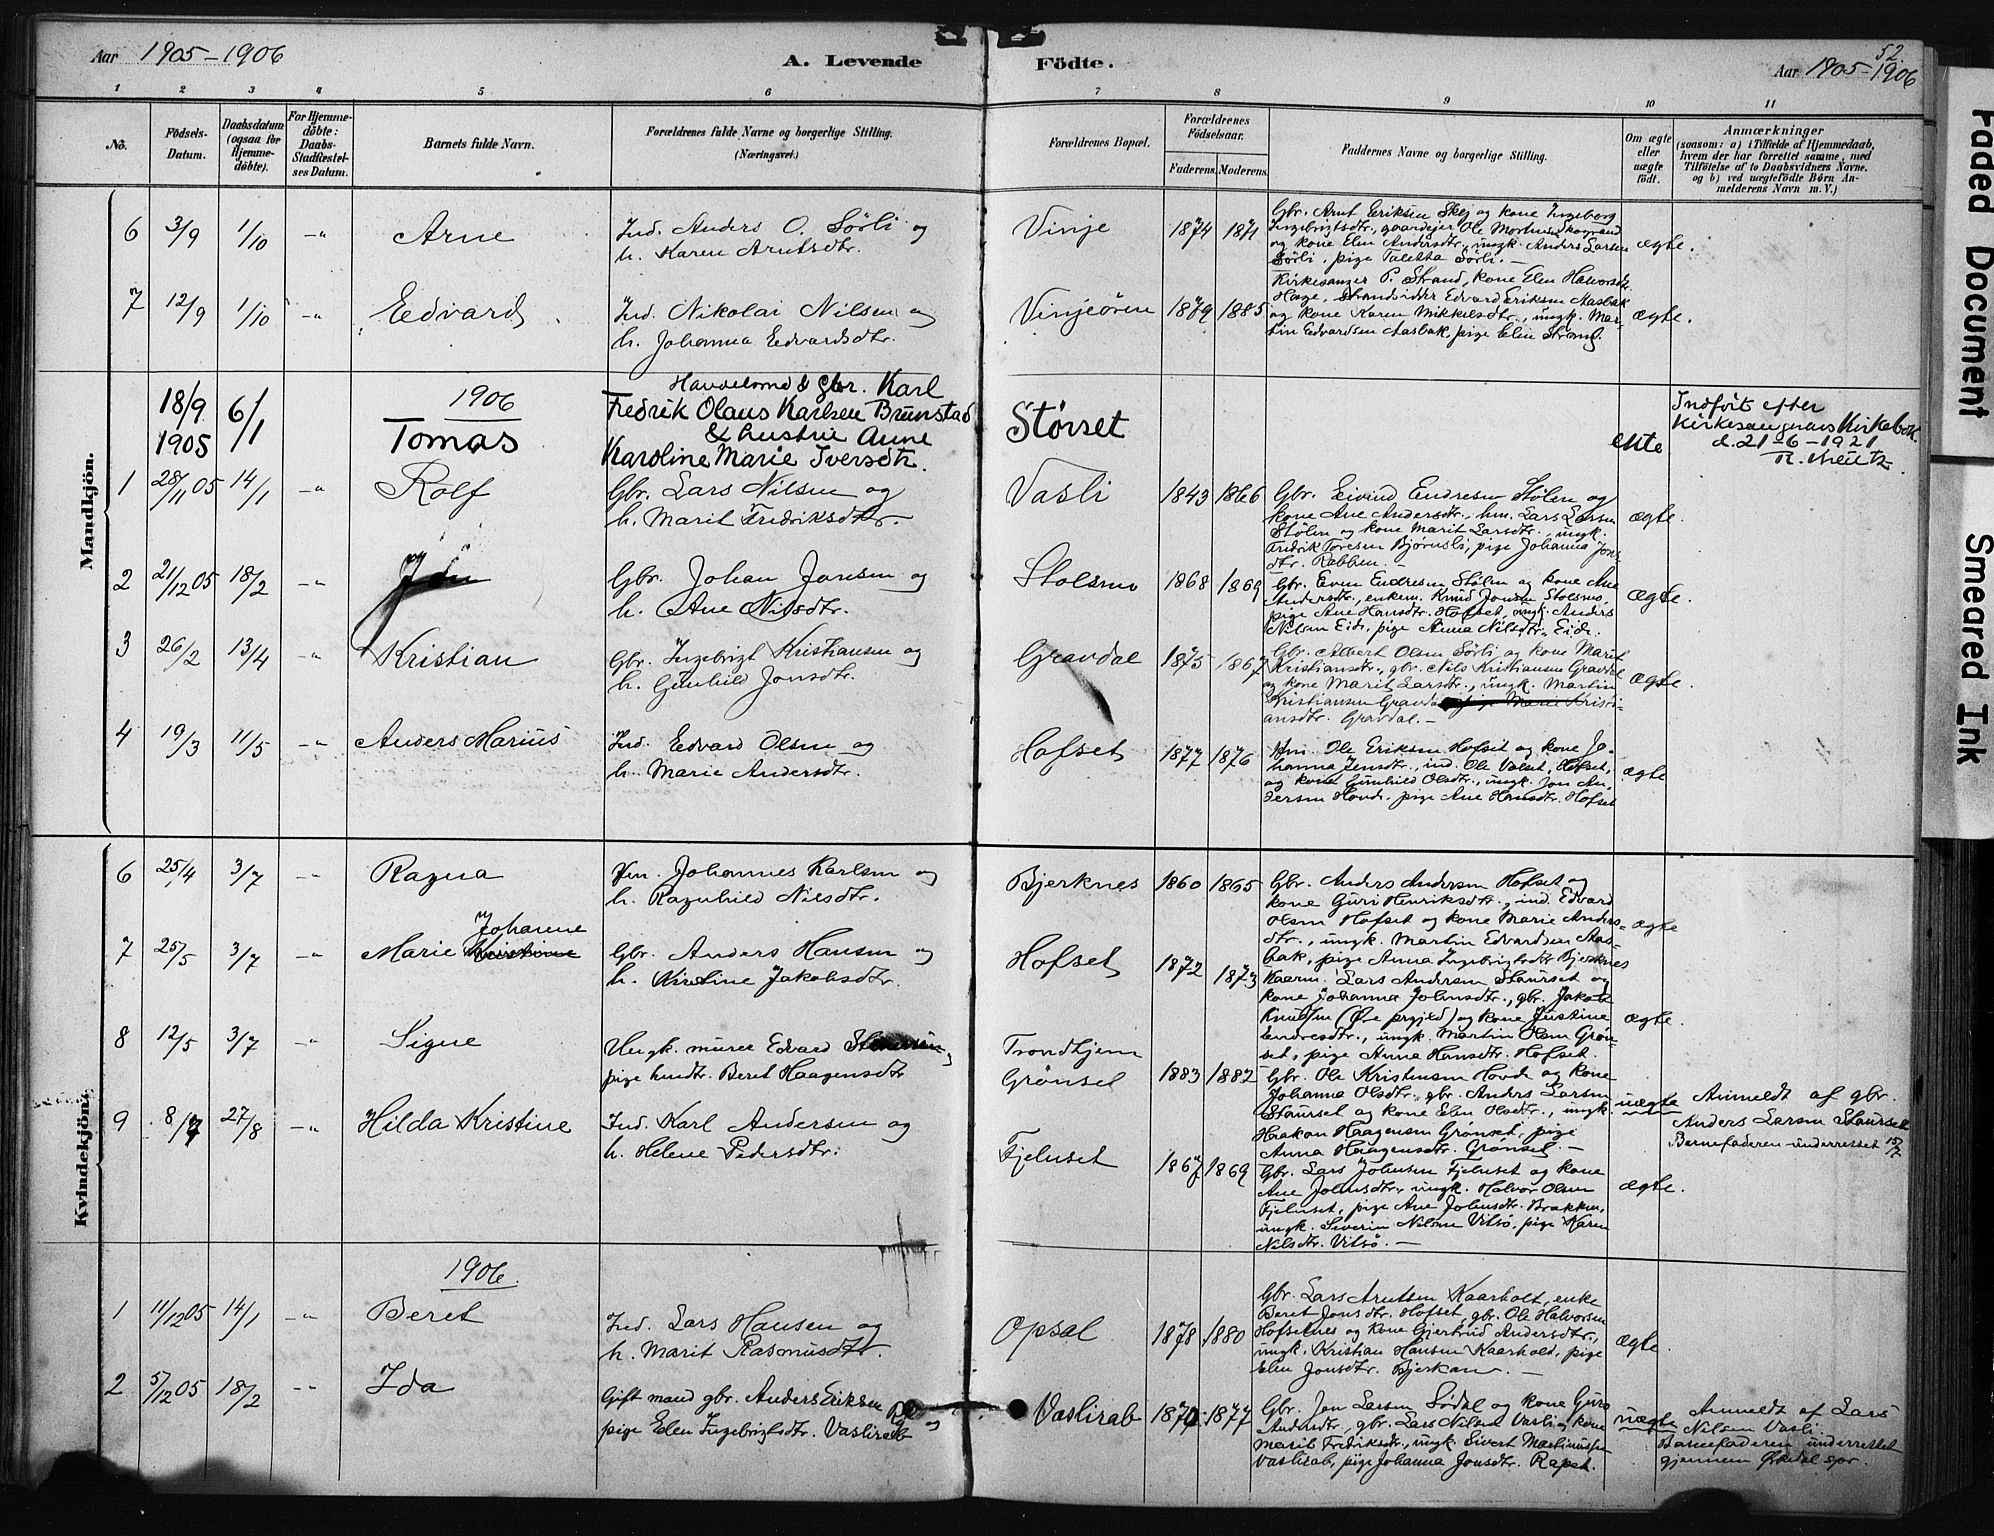 Aar 1905-1906
A. Levende Födte.
52.
Aar 1905-1906
1 2 3 4 5 6 7 8 9 10 11
No.
Födsels-Datum.
Daabsdatum (ogsaa for Hjemme-döbte).
For Hjemme-döbte: Daabs-Stadfæstel-ses Datum.
Barnets fulde Navn.
Forældrenes fulde Navne og borgerlige Stilling.
(Næringsvei.)
Forældrenes Bopæl.
Forældrenes Födselsaar.
Faderens. Moderens.
Faddernes Navne og borgerlige Stilling.
Om ægte eller uægte födt.
Anmærkninger
(saasom: a) i Tilfælde af Hjemmedaab,
hvem der har forrettet samme, med
Tilföielse af to Daabsvidners Navne.
og b) ved uægtefödte Börn An-
melderens Navn m. V.)
Mandkjön.
6 3/9 1/10 -"- Arne
Ind. Anders O. Sörli og
h. Karen Arntsdtr.
Vinje 1874 1871
Gbr. Arnt Eriksen Skej og kone Ingeborg
Ingebrigtsdtr., gaardejer Ole
og kone Elen Andersdtr., ungk. Anders Larsen
Sörli, pige Taletta Sörli. -
ægte.
7 12/9 1/10 -"- Edvard
Ind. Nikolai Nilsen og
h. Johanna Edvardsdtr.
Vinjeören 1879 1885
Kirkesanger P. Strand, kone Elen Halvorsdtr.
Hage, strandsidder Edvard Eriksen Aasbak
og kone Karen Mikkelsdtr., ungk. Mar-
tin Edvardsen Aasbak, pige Elen Strand.
ægte.
18/9 1905 6/1
1906
Tomas
Handelsmd & gbr. Karl
Fredrik Olaus Karlsen Brunstad
& hustru Anne
Karoline Marie Iversdtr.
Størset
ekte
Indført efter
kirkesangerens Kirkebok
d. 21-6-1921
1 28/11 05 14/1 -"- Rolf
Gbr. Lars Nilsen og
h. Marit Fredriksdtr.
Vasli 1843 1866
Gbr. Eivind Endresen Stölen og
kone Ane Andersdtr., hm. Lars Larsen
Stölen og kone Marit Larsdtr., ungk.
Fredrik Toresen Bjørnsli, pige Johanna Jons-
dtr. Rabben.
ægte.
2 21/12 05 18/2 -"-
Gbr. Johan Jonsen og
h. Ane Nilsdtr.
Stolsmo 1868 1869
Gbr. Even Endresen Stölen og kone Ane
Andersdtr., enkem. Knud Jonsen Stolsmo,
pige Ane Hansdtr. Hofset, ungk. Anders
Nilsen Eide, pige Anna Nilsdtr. Eide.
ægte.
3 26/2 13/4 -"- Kristian
Gbr. Ingebrigt Kristiansen og
h. Gunhild Jonsdtr.
Gravdal 1875 1867
Gbr. Albert Olsen Sörli og kone Marit
Kristiansdtr., gbr. Nils Kristiansen Gravdal
og kone Marit Larsdtr., ungk. Martin
Kristiansen Gravdal, pige Marie Kristi-
ansdtr. Gravdal. -
ægte.
4 19/3 11/5 -"- Anders Marius
Ind. Edvard Olsen og
h. Marie Andersdtr.
Hofset 1877 1876
Hm. Ole Eriksen Hofset og kone Jo-
hanna Jensdtr., ind. Ole Valset, Hofset,
og kone Gunhild Olsdtr., ungk. Jon An-
dersen Hovde, pige Ane Hansdtr. Hofset
ægte
Kvindekjön.
6 25/4 3/7 -"- Ragna
Hm. Johannes Karlsen og
h. Ragnhild Nilsdtr.
Bjerknes 1860 1865
Gbr. Anders Andersen Hofset og
kone Guri Henriksdtr., ind. Edvard
Olsen Hofset og kone Marie Anders-
dtr., ungk. Martin Edvardsen Aas-
bak, pige Anna Ingebrigtsdtr Bjerknes
ægte
7 25/5 3/7 -"- Marie Kristinne Johanne
Gbr. Anders Hansen og
h. Kirstine Jakobsdtr.
Hofset 1872 1873
Kaarm. Lars Andersen Staurset og
kone Johanna Johnsdtr., gbr. Jakob
Knudsen (Öie prgjeld) og kone Justine
Endresdtr., ungk. Martin Olsen Grön-
set, pige Anna Hansdtr. Hofset.
ægte.
8 12/5 3/7 -"- Signe
Ungk. murer Edvard
pige hmdtr. Beret Haagensdtr
Trondhjem
Grönset 1883 1882
Gbr. Ole Kristensen Hovde og kone
Johanna Olsdtr., gbr. Anders Larsen
Staurset og kone Elen Olsdtr., ungk.
Haakon Haagensen Grönset, pige
Anna Haagensdtr. Grönset. -
uægte
Anmeldt af gbr.
Anders Larsen Staurset
Barnefaderen underrettet 15/7
9 8/7 27/8 -"- Hilda Kristine
Ind. Karl Andersen og
h. Helene Pedersdtr.
Fjelnset 1867 1869
Gbr. Lars Johnsen Fjelnset og kone
Ane Johnsdtr., ungk. Halvor Olsen
Fjelnset, pige Ane Johnsdtr. Brakken,
ungk. Severin Nilsen Vitsö, pige Karen
Nilsdtr. Vitsö. -
ægte.
1906.
1 11/12 05 14/1 -"- Beret
Ind. Lars Hansen og
h. Marit Rasmusdtr.
Opsal 1878 1880
Gbr. Lars Arntsen Kaarholt, enke
Beret Jonsdtr. Hofset, gbr. Ole Halvorsen
Hofsetnes og kone Gjertrud Andersdtr.,
ungk. Kristian Hansen Kaarhold, pige
Elen Jonsdtr. Bjerkan. -
ægte.
2 5/12 05 18/2 -"- Ida
Gift mand gbr. Anders Eriksen og
pige Elen Ingebrigtsdtr. Vaslirab
Vaslirab 1870 1877
Gbr. Jon Larsen Södal og kone Guro
Andersdtr., gbr. Lars Nilsen Vasli og kone
Marit Fredriksdtr., ungk. Sivert Martinussen
Vaslirab, pige Johanna Jonsdtr. Rapet.
uægte
Anmeldt af Lars
Nilsen Vasli.
Barnefaderen underrettet
gjennem Örkedal spr.
Faded Document
Smeared Ink